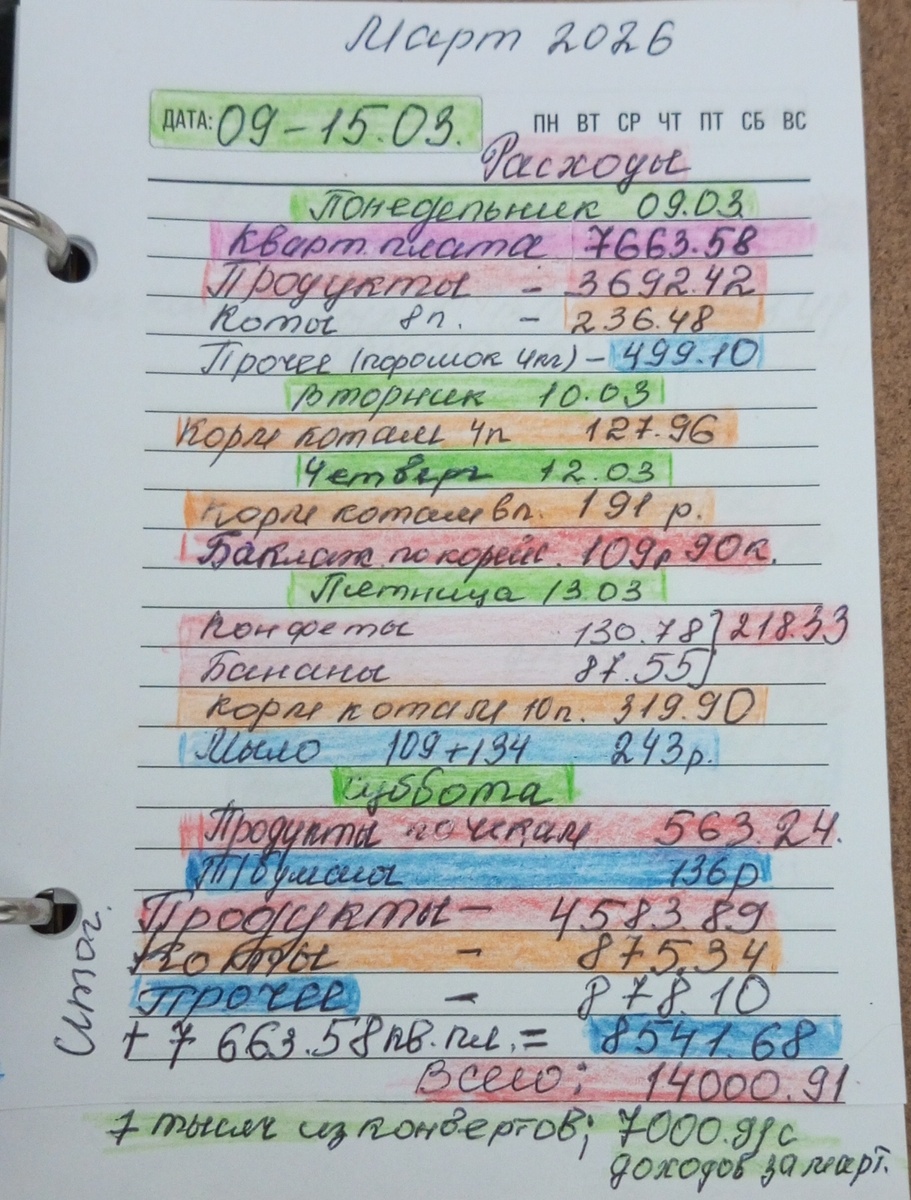 Март 2026
ДАТА: 09-15.03. ПН ВТ СР ЧТ ПТ СБ ВС
Расходы
Понедельник 09.03.
Кварт.плата 7663.58
Продукты - 3692.42
Коты 8п. - 236.48
Прочее (порошок 4кг) - 499.10
Вторник 10.03
Корм котам 4п 127.96
Четверг 12.03
Корм котам 6п. 191 р.
Баклаж. по корейс. 109р 90к.
Пятница 13.03
Конфеты 130.78] 218.33
Бананы 87.55]
Корм котам 10п. 319.90
Мыло 109+134 243р.
Суббота
Продукты по чекам 563.24.
Т/бумага 136р
Итог.
Продукты - 4583.89
Коты - 875.34
Прочее - 878.10
+ 7 663.58 кв.пл. = 8541.68
Всего: 14000.91
7 тысяч из конвертов; 7000.91 с
доходов за март.